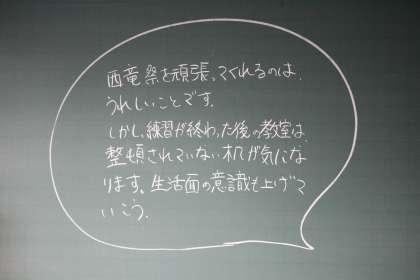 西竜祭を頑張ってくれるのは、
うれしいことです。
しかし、練習が終わった後の教室は、
整頓されていない机が気にな
ります。生活面の意識も上げて
いこう。